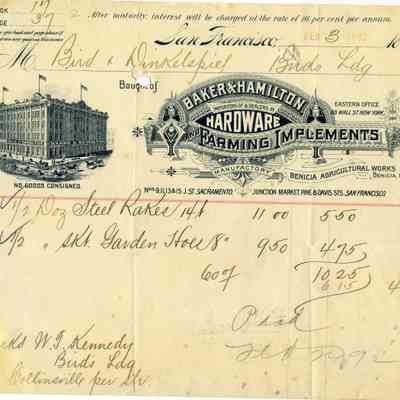 17
37
After maturity, interest will be charged at the rate of 10 per cent per annum.
San Francisco, FEB 3
M Bird & Dinkelspiel Birds Ldg
Bought of
BAKER & HAMILTON
IMPORTERS OF & DEALERS IN
HARDWARE
AND FARMING IMPLEMENTS
MANUFACTURERS
EASTERN OFFICE
88 WALL ST. NEW YORK.
BENICIA AGRICULTURAL WORKS
BENICIA,
NO GOODS CONSIGNED.
Nos 9, 11, 13 & 15 J. ST. SACRAMENTO. JUNCTION MARKET, PINE & DAVIS STS. SAN FRANCISCO
1/2 Doz Steel Rakes 14t 11 00 5 50
1/2 " Skt. Garden Hoes 8" 9 50 4 75
60% 10 25
6 15 4
W. J. Kennedy
Birds Ldg
Collinsville per Str